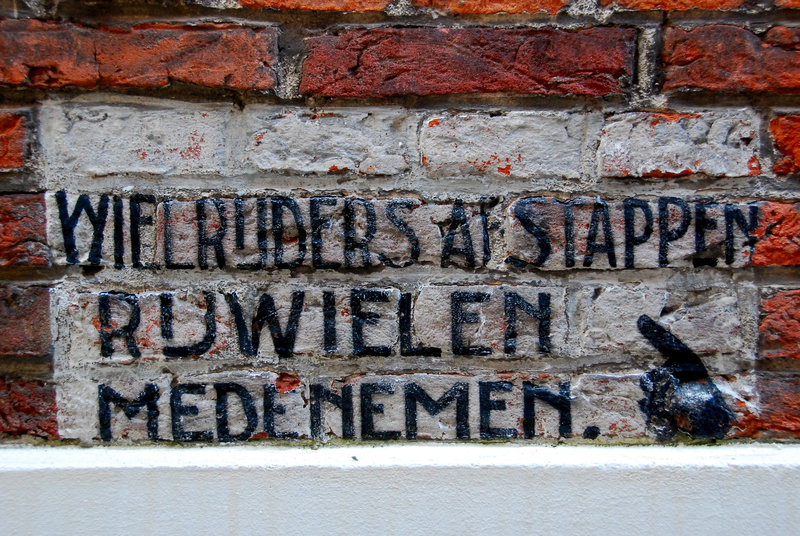 WIELRIJDERS AFSTAPPEN
RIJWIELEN
MEDENEMEN.